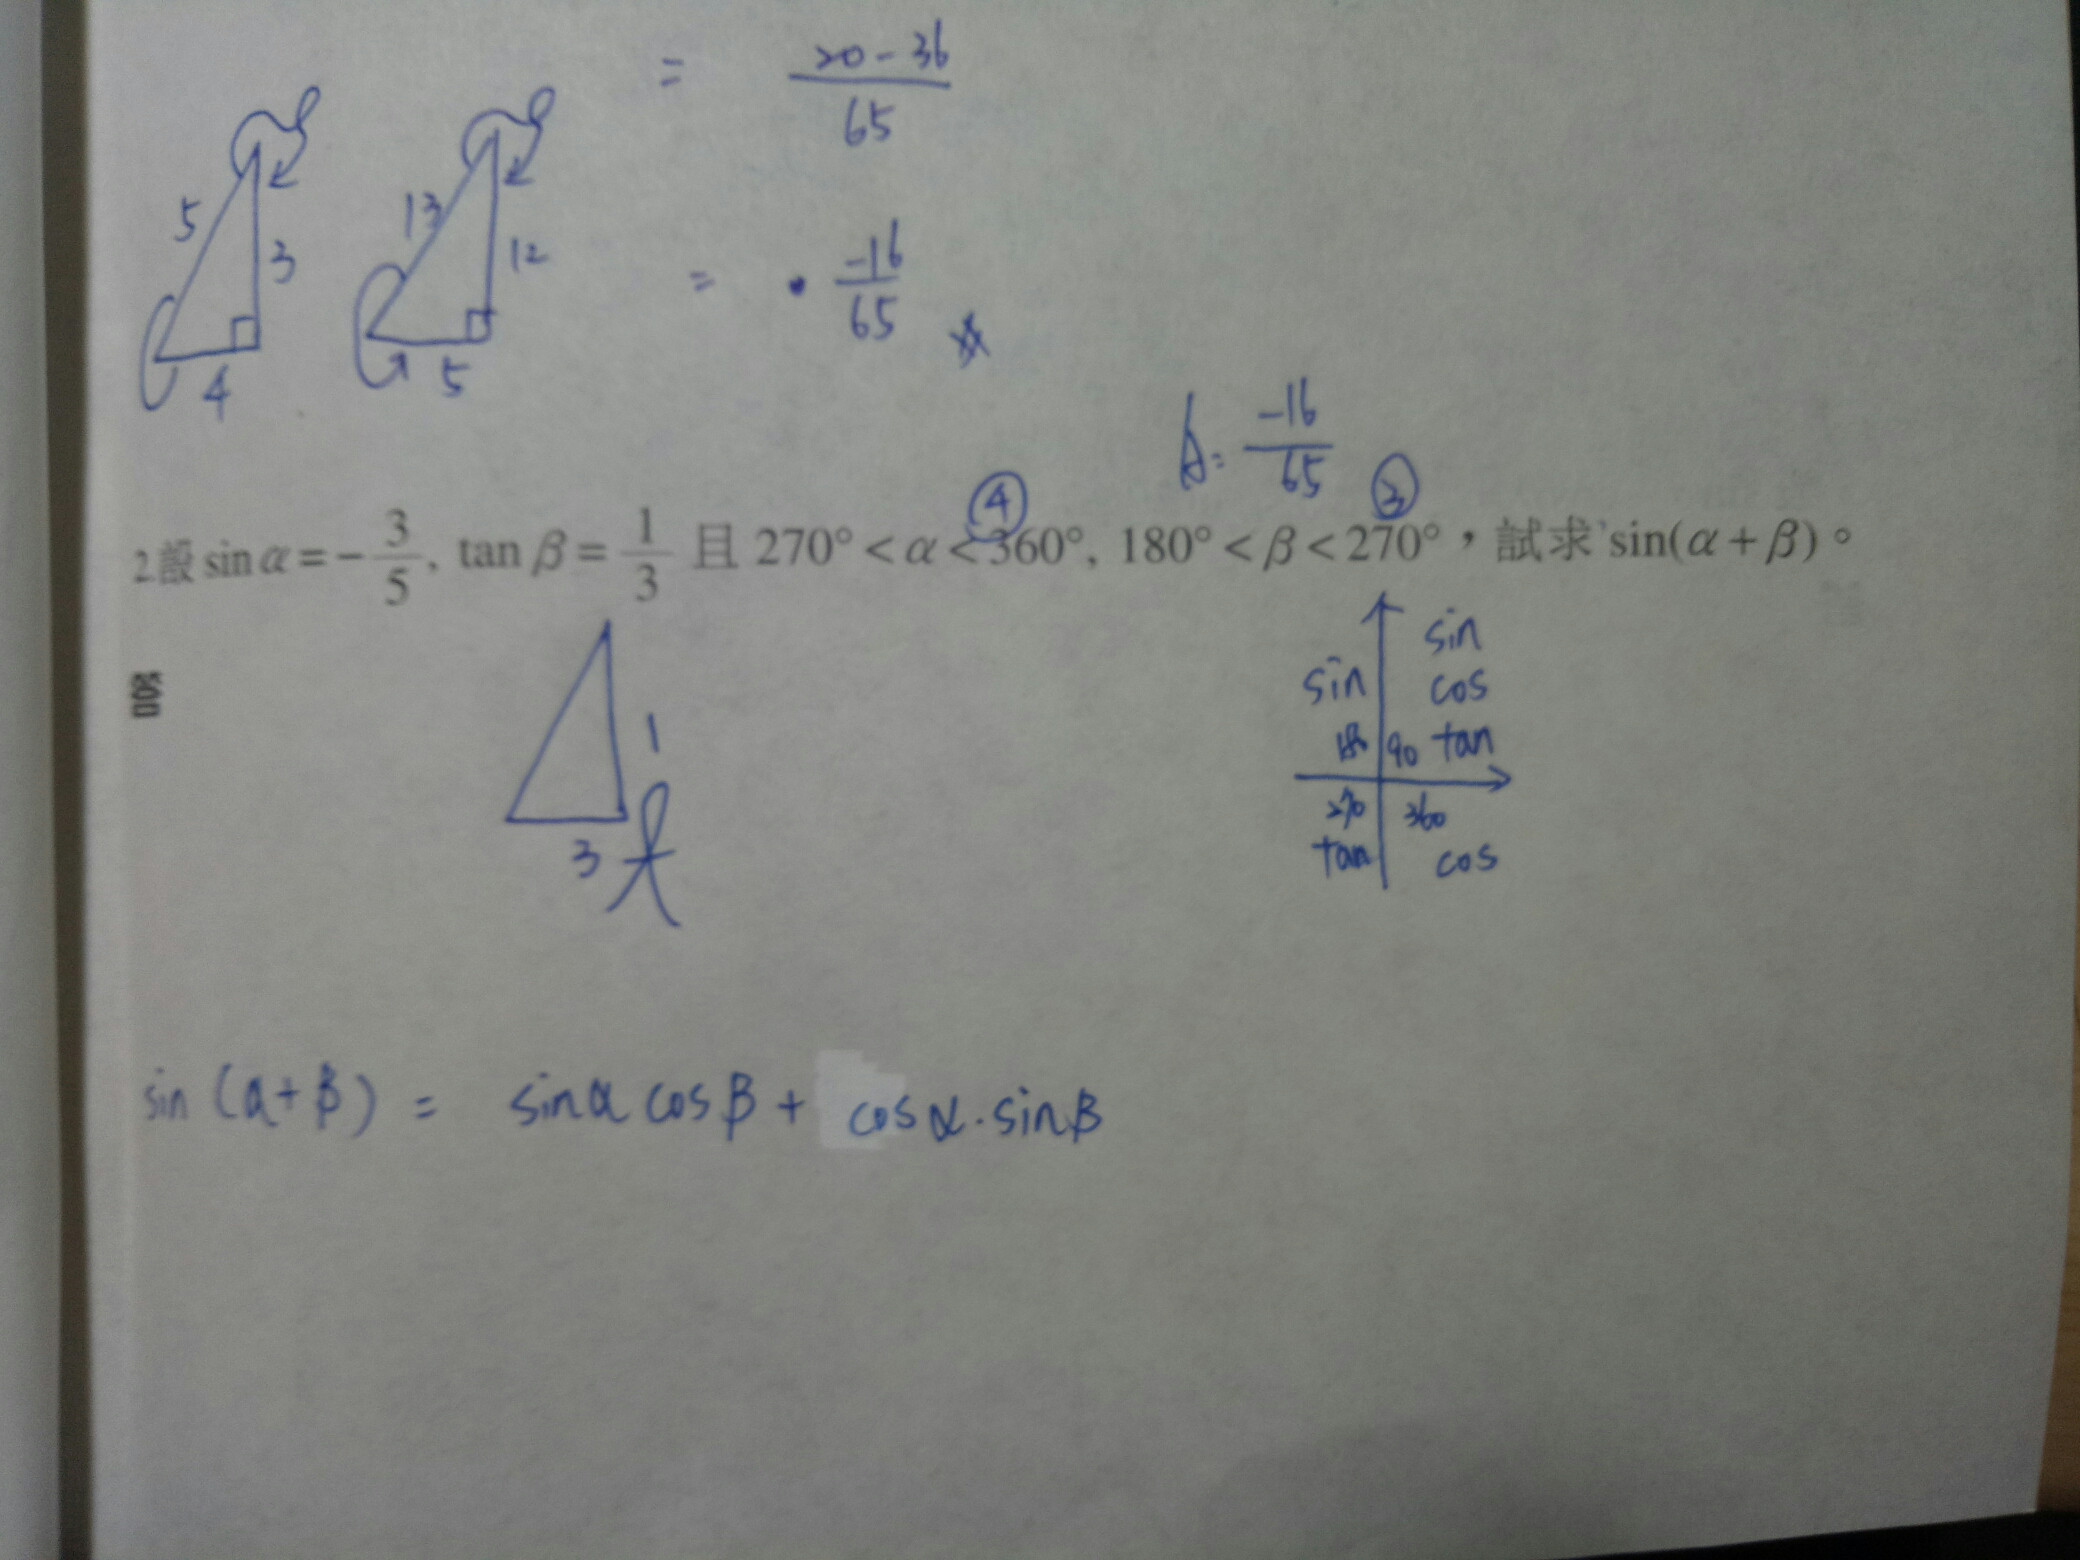 = 20-36/65
5 3 4
13 12 5
= -16/65
A= -16/65
④ ③
2.設 sin α = -3/5, tan β = 1/3 且 270° < α < 360°, 180° < β < 270°，試求 sin(α+β)。
sin sin
cos
180 90 tan
270 360
tan cos
1
3
sin (α+β) = sinα cosβ + cosα·sinβ